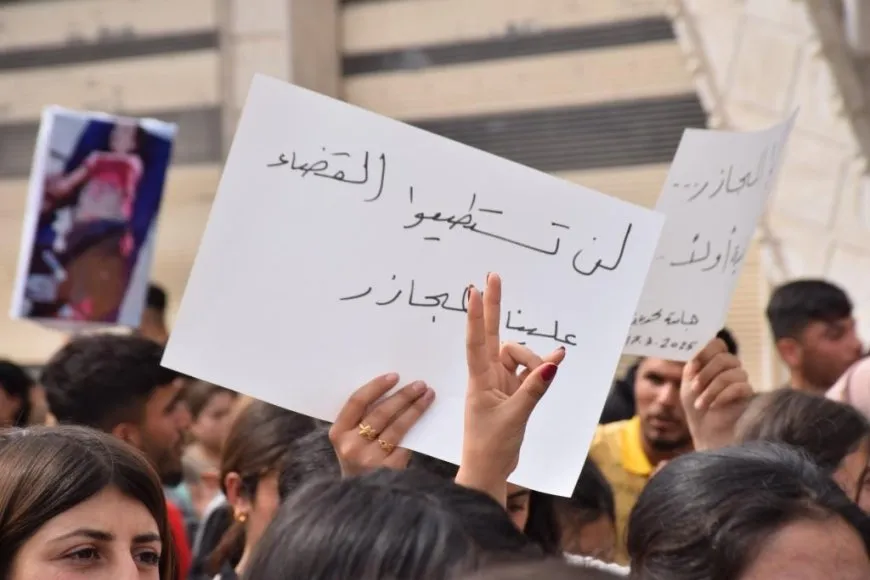 لن تستطيعوا القضاء
علينا بالمجازر
المجازر...
أولاً..
2025